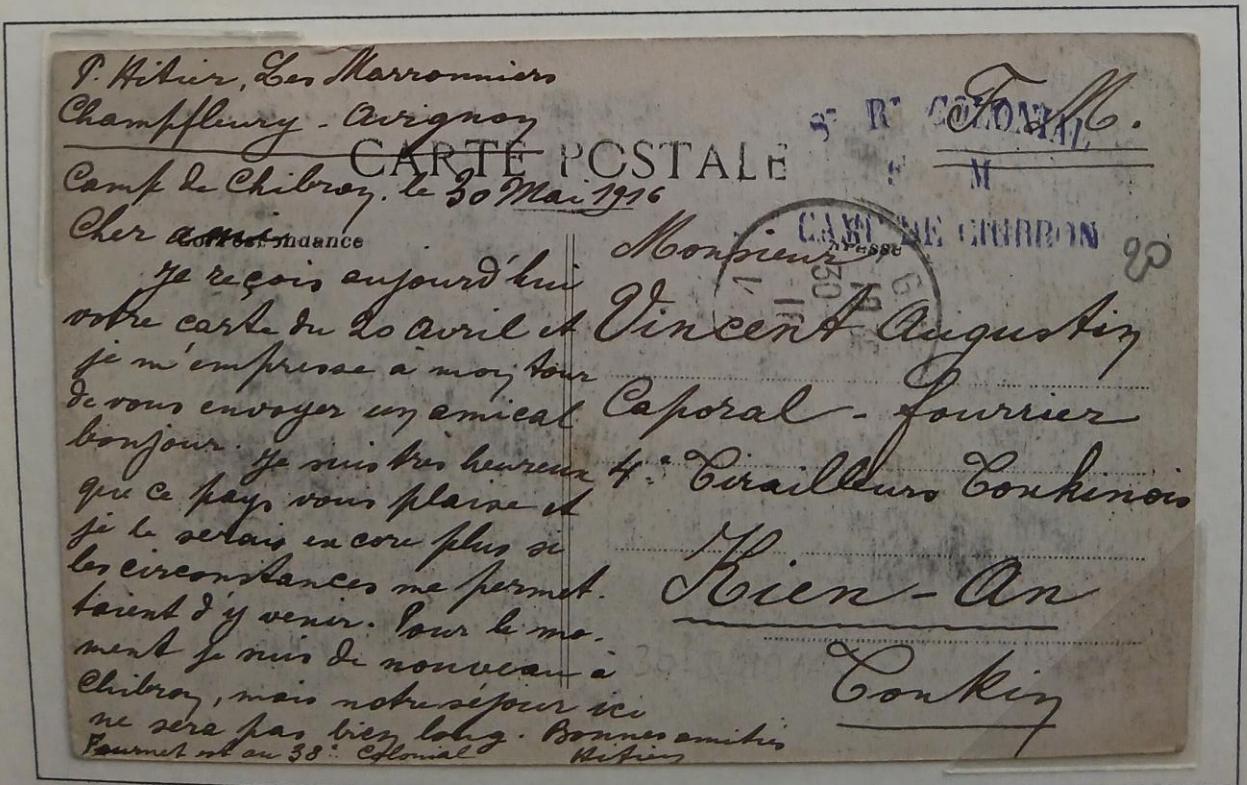 P. Hitier, Les Marronniers
Champfleury - Avignon
CARTE POSTALE
Camp de Chibron, le 30 Mai 1916
Correspondance
Cher ami
Je reçois aujourd'hui
votre carte du 20 avril et
je m'empresse à mon tour
de vous envoyer un amical
bonjour. Je suis très heureux
que ce pays vous plaise et
je le serais encore plus si
les circonstances me permet-
taient d'y venir. Pour le mo-
ment je suis de nouveau à
Chibron, mais notre séjour ici
ne sera pas bien long. Bonnes amitiés
Fournet est au 38e Colonial
Hitier
F. M.
COLONIAL
F M
CAMP DE CHIBRON
20
Monsieur
Vincent Augustin
Caporal - fourrier
4e Tirailleurs Tonkinois
Kien-An
Tonkin
30